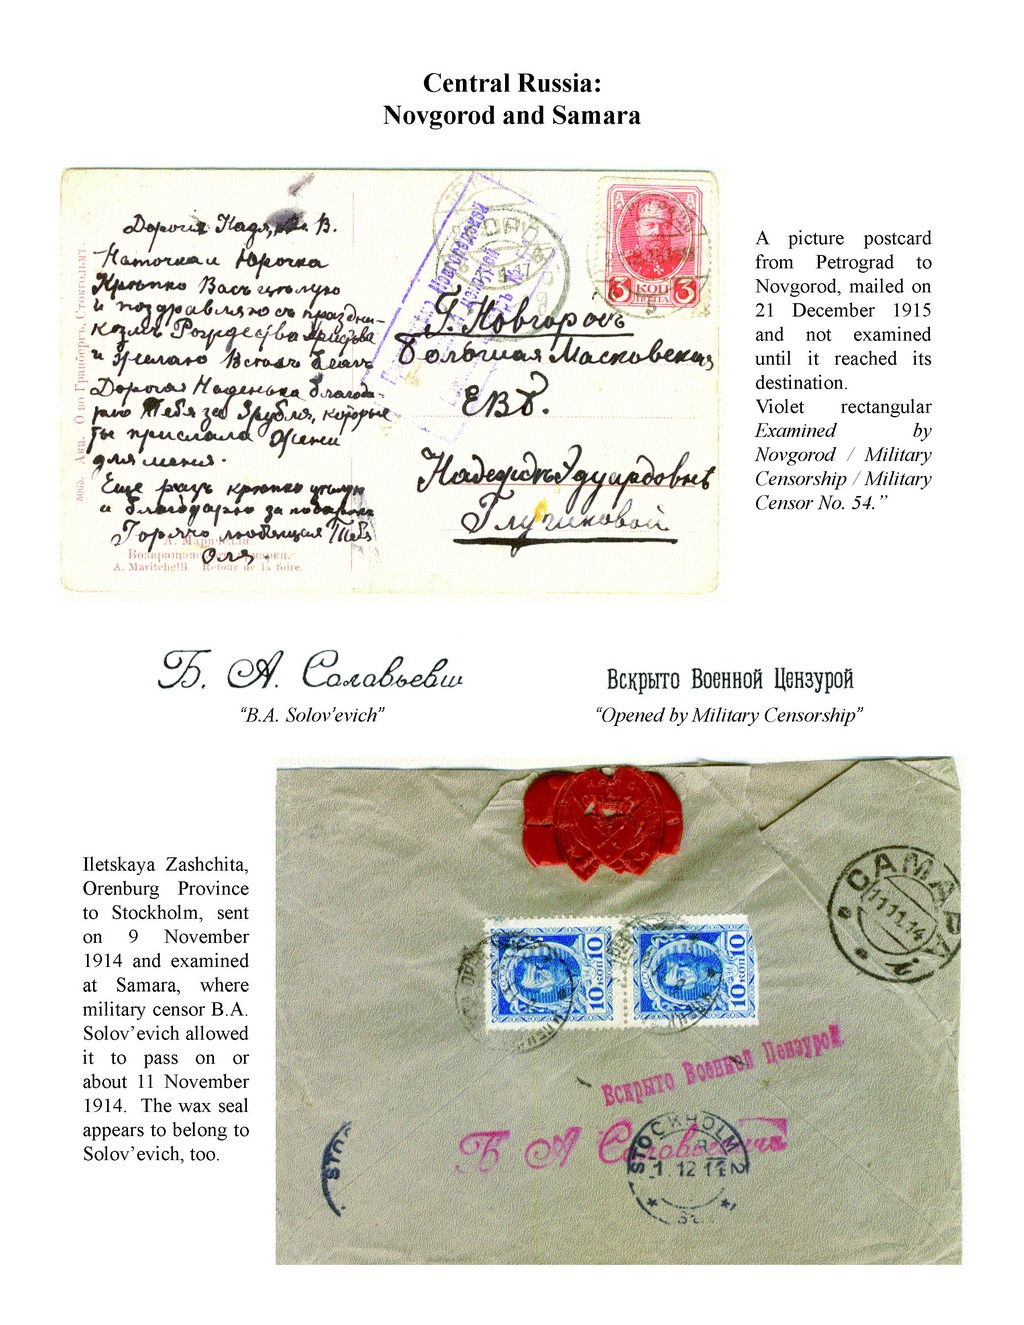 Central Russia:
Novgorod and Samara
Дорогія Надя, В. В.
Наточка и Юрочка
Крѣпко Васъ цѣлую
и поздравляю съ праздни-
комъ Рождества Христова
и желаю Всѣхъ благъ
Дорогая Наденька благода-
рю Тебя за 3 рубля, которые
ты прислала Жени
для меня.
Еще разъ крѣпко цѣлую
и благодарю за подарокъ
Горячо любящая Тебя
Оля.
А. Маричелли
Возвращеніе съ ярмарки.
A. Maritchelli. Retour de la foire.
5063. Акц. О-во Гранбергъ, Стокгольмъ.
3 КОП 3
ПОЧТА
Г. Новгородъ
Большая Московская
ЕВБ.
Надеждѣ Эдуардовнѣ
Глушковой
A picture postcard
from Petrograd to
Novgorod, mailed on
21 December 1915
and not examined
until it reached its
destination.
Violet rectangular
Examined by
Novgorod / Military
Censorship / Military
Censor No. 54.”
Б. А. Солавьевш
“B.A. Solov’evich”
Вскрыто Военной Цензурой
“Opened by Military Censorship”
Iletskaya Zashchita,
Orenburg Province
to Stockholm, sent
on 9 November
1914 and examined
at Samara, where
military censor B.A.
Solov’evich allowed
it to pass on or
about 11 November
1914. The wax seal
appears to belong to
Solov’evich, too.
САМАРА
11.11.14
10 КОП 10
10 КОП 10
Вскрыто Военной Цензурой
Б А Солавьевичъ
STOCKHOLM
1 12 14
STO